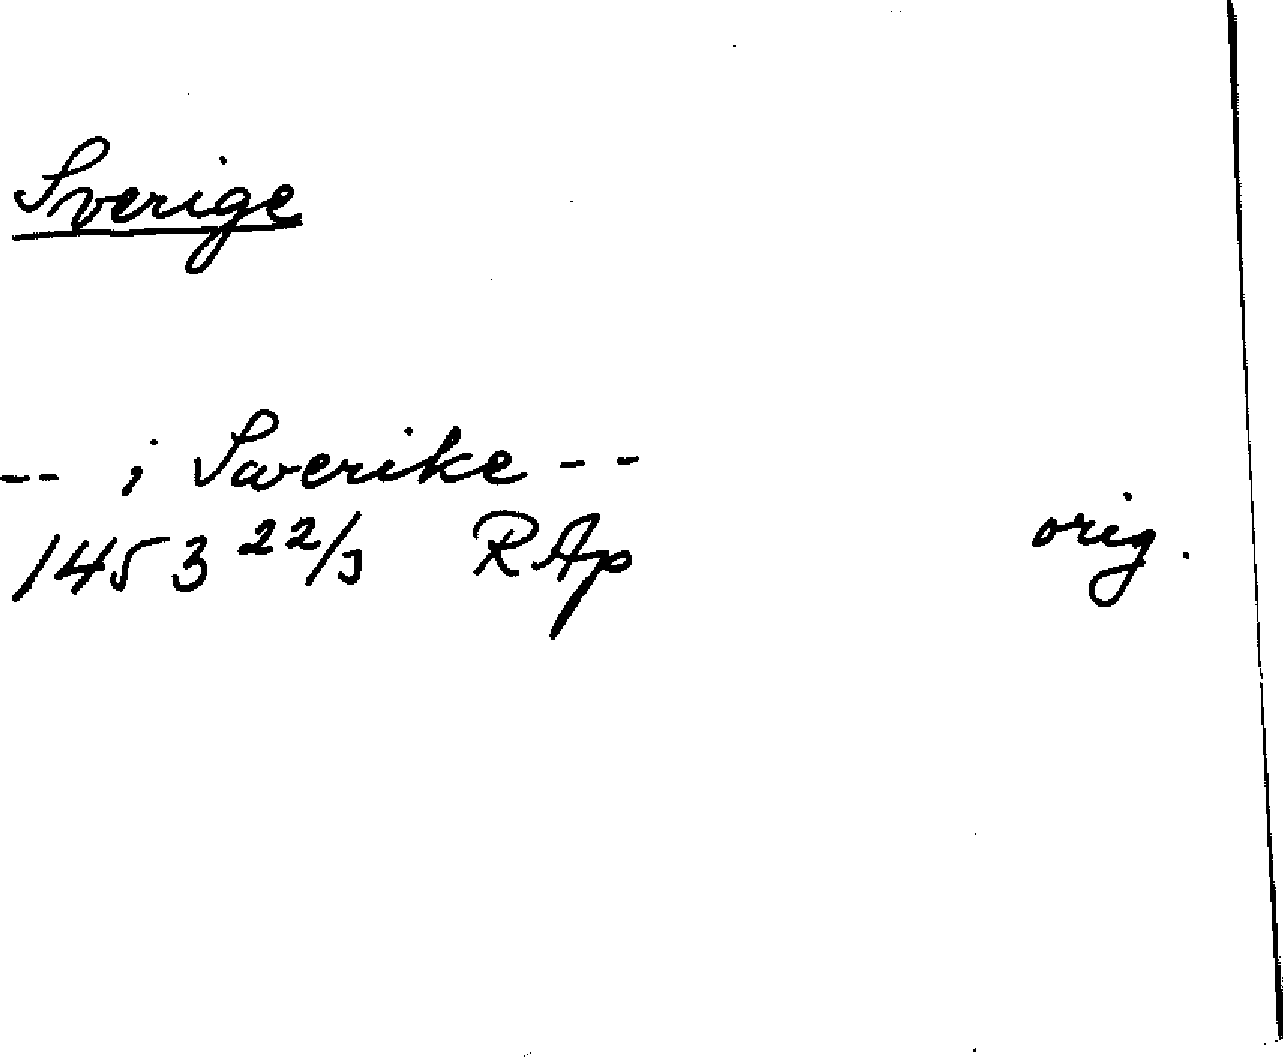 Sverige
-- i Swerike --
1453 22/3 RAp orig.